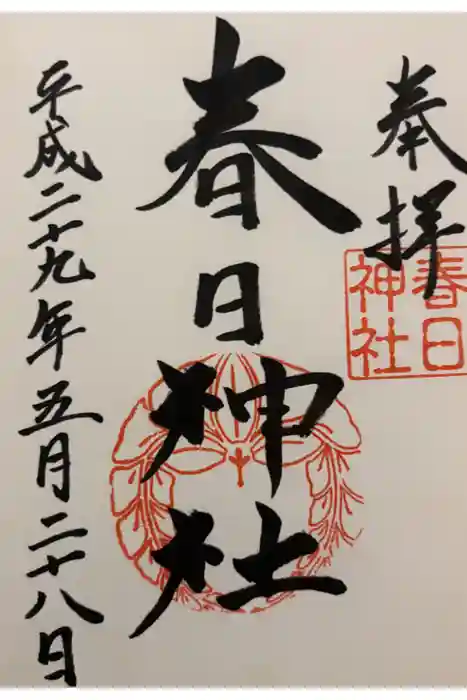 奉拝
春日
神社
春日神社
平成二十九年五月二十八日